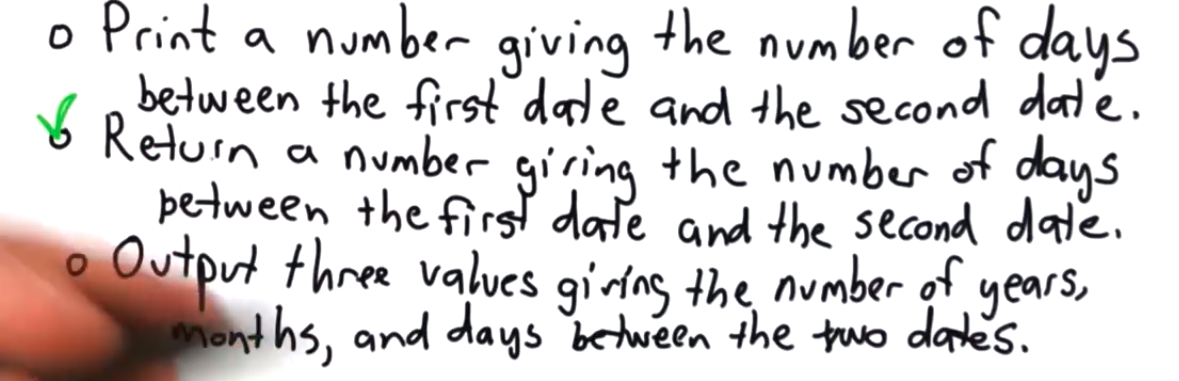 o Print a number giving the number of days
between the first date and the second date.
o Return a number giving the number of days
between the first date and the second date.
o Output three values giving the number of years,
months, and days between the two dates.